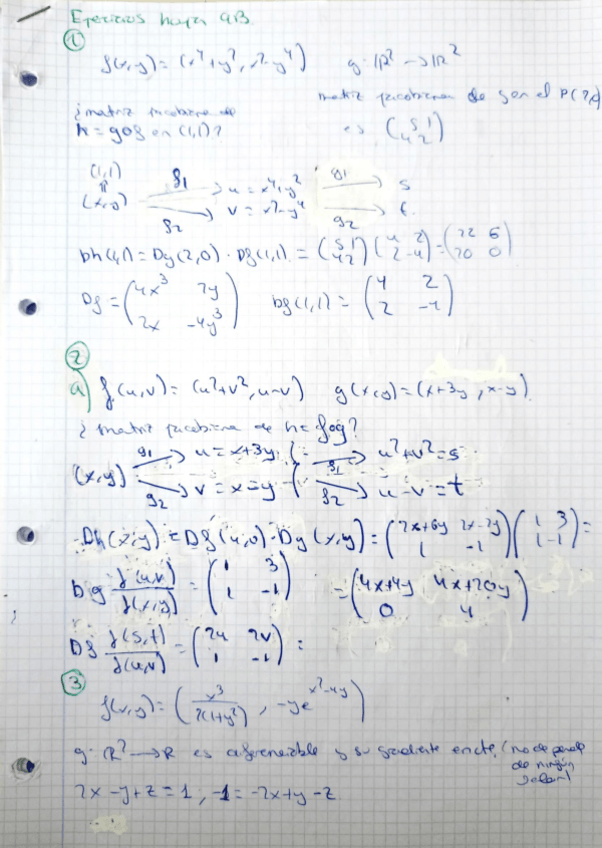 Ejercicios hoja 9B.
①
f(x,y) = (x⁴+y², x²-y⁴) g: ℝ² → ℝ²
¿matriz jacobiana de matriz jacobiana de g en el P(2,0)
h = gof en (1,1)? es (5 1
4 2)
(1,1)
(x,y) f1 → u = x⁴+y² g1 → s
f2 → v = x²-y⁴ g2 → t.
Dh(1,1) = Dg(2,0) · Df(1,1) = (5 1
4 2) (4 2
2 -4) = (22 6
20 0)
Df = (4x³ 2y
2x -4y³) Df(1,1) = (4 2
2 -4)
②
a) f(u,v) = (u²+v², u-v) g(x,y) = (x+3y, x-y)
¿matriz jacobiana de h = fog?
(x,y) g1 → u = x+3y f1 → u²+v² = s
g2 → v = x-y f2 → u-v = t
Dh(x,y) = Df(u,v) · Dg(x,y) = (2x+6y 2x-2y
1 -1) (1 3
1 -1) =
Dg J(u,v)/J(x,y) = (1 3
1 -1) = (4x+4y 4x+20y
0 4)
Df J(s,t)/J(u,v) = (2u 2v
1 -1) =
③
f(x,y) = (x³/2(1+y²), -ye^{x²-4y})
g: ℝ² → ℝ es diferenciable y su gradiente en cte, (no depende
de ningún
2x - y + z = 1, -1 = -2x + y - z